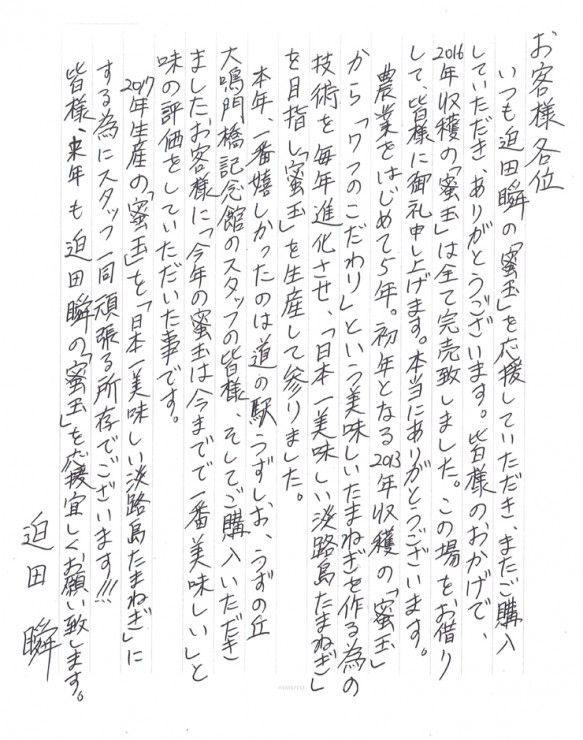 お客様各位
いつも迫田瞬の「蜜玉」を応援していただき、またご購入
していただき、ありがとうございます。皆様のおかげで、
2016年収穫の「蜜玉」は全て完売致しました。この場をお借り
して、皆様に御礼申し上げます。本当にありがとうございます。
農業をはじめて5年。初年となる2013年収穫の「蜜玉」
から「7つのこだわり」という美味しいたまねぎを作る為の
技術を毎年進化させ、「日本一美味しい淡路島たまねぎ」
を目指し「蜜玉」を生産して参りました。
本年、一番嬉しかったのは道の駅うずしお、うずの丘
大鳴門橋記念館のスタッフの皆様、そしてご購入いただき
ましたお客様に「今年の蜜玉は今までで一番美味しい」と
味の評価をしていただいた事です。
2017年生産の「蜜玉」を「日本一美味しい淡路島たまねぎ」に
する為にスタッフ一同頑張る所存でございます!!!
皆様、来年も迫田瞬の「蜜玉」を応援宜しくお願い致します。
迫田 瞬